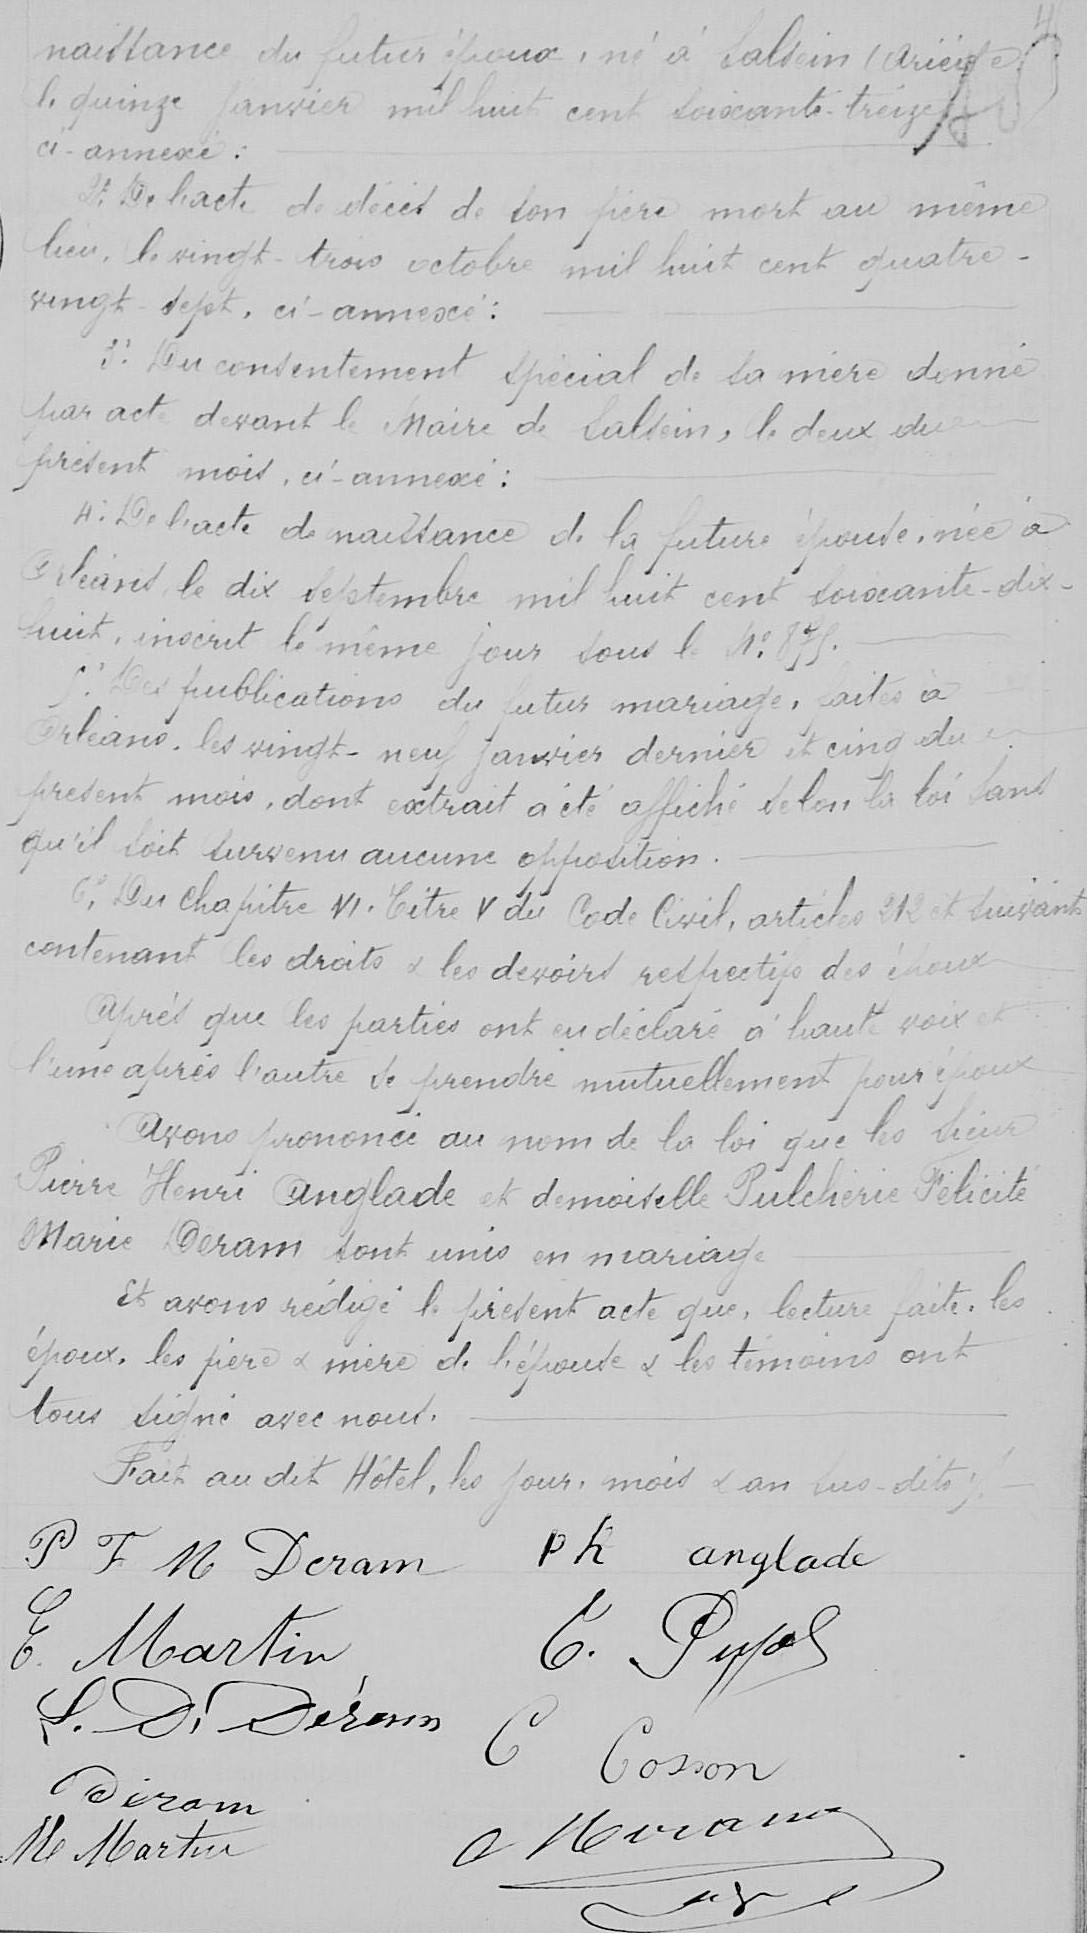 naissance du futur époux, né à Salsein (Ariège)
le quinze janvier mil huit cent soixante-treize
ci-annexé :
2° De l'acte de décès de son père mort au même
lieu, le vingt-trois octobre mil huit cent quatre-
vingt-sept, ci-annexé :
3° Du consentement spécial de sa mère donné
par acte devant le Maire de Salsein, le deux du
présent mois, ci-annexé :
4° De l'acte de naissance de la future épouse, née à
Orléans, le dix septembre mil huit cent soixante-dix-
huit, inscrit le même jour sous le N°
5° Des publications du futur mariage, faites à
Orléans, les vingt-neuf janvier dernier et cinq du
présent mois, dont extrait a été affiché selon la loi sans
qu'il soit survenu aucune opposition.
6° Du Chapitre VI. Titre V du Code Civil, articles 212 et suivants
contenant les droits & les devoirs respectifs des époux
Après que les parties ont eu déclaré à haute voix et
l'une après l'autre se prendre mutuellement pour époux
Avons prononcé au nom de la loi que les sieur
Pierre Henri Anglade et demoiselle Pulchérie Félicité
Marie Deram sont unis en mariage
Et avons rédigé le présent acte que, lecture faite, les
époux, les père & mère de l'épouse & les témoins ont
tous signé avec nous.
Fait au dit Hôtel, les jour, mois & an sus-dits
P F M Deram ph anglade
E. Martin E. Pujol
S. D. Déram
C Cosson
Déram
M Martin